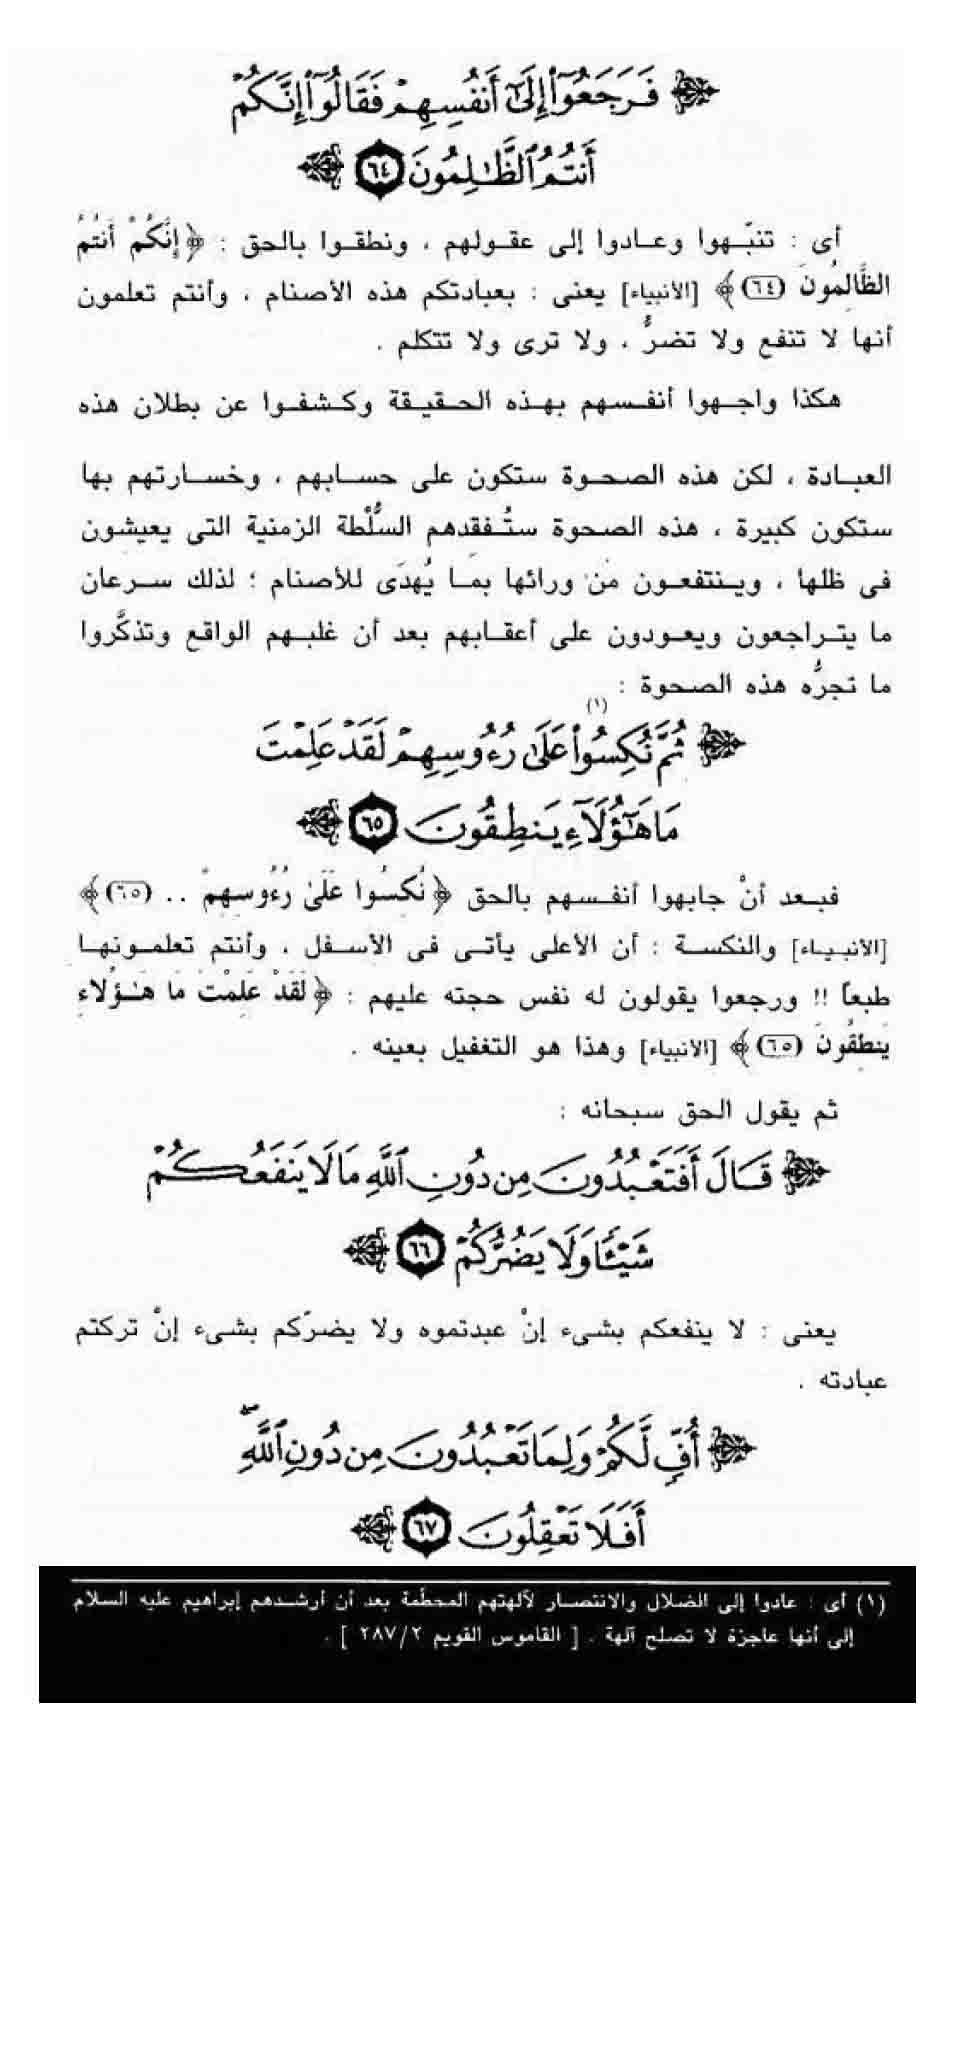 ﴿ فَرَجَعُوٓا۟ إِلَىٰٓ أَنفُسِهِمْ فَقَالُوٓا۟ إِنَّكُمْ
أَنتُمُ ٱلظَّٰلِمُونَ ٦٤ ﴾
أى : تنبّهوا وعادوا إلى عقولهم ، ونطقوا بالحق : ﴿ إِنَّكُمْ أَنتُمُ
الظَّالِمُونَ (٦٤) ﴾ [الأنبياء] يعنى : بعبادتكم هذه الأصنام ، وأنتم تعلمون
أنها لا تنفع ولا تضرُّ ، ولا ترى ولا تتكلم .
هكذا واجهوا أنفسهم بهذه الحقيقة وكشفوا عن بطلان هذه
العبادة ، لكن هذه الصحوة ستكون على حسابهم ، وخسارتهم بها
ستكون كبيرة ، هذه الصحوة ستُفقدهم السُّلْطة الزمنية التى يعيشون
فى ظلها ، وينتفعون من ورائها بما يُهدَى للأصنام ؛ لذلك سرعان
ما يتراجعون ويعودون على أعقابهم بعد أن غلبهم الواقع وتذكَّروا
ما تجرُّه هذه الصحوة :
﴿ ثُمَّ نُكِسُوا۟ (١) عَلَىٰ رُءُوسِهِمْ لَقَدْ عَلِمْتَ
مَا هَٰٓؤُلَآءِ يَنطِقُونَ ٦٥ ﴾
فبعد أنْ جابهوا أنفسهم بالحق ﴿ نُكِسُوا عَلَىٰ رُءُوسِهِمْ .. (٦٥) ﴾
[الأنبياء] والنكسة : أن الأعلى يأتى فى الأسفل ، وأنتم تعلمونها
طبعاً !! ورجعوا يقولون له نفس حجته عليهم : ﴿ لَقَدْ عَلِمْتَ مَا هَٰؤُلَاءِ
يَنطِقُونَ (٦٥) ﴾ [الأنبياء] وهذا هو التغفيل بعينه .
ثم يقول الحق سبحانه :
﴿ قَالَ أَفَتَعْبُدُونَ مِن دُونِ ٱللَّهِ مَا لَا يَنفَعُكُمْ
شَيْـًٔا وَلَا يَضُرُّكُمْ ٦٦ ﴾
يعنى : لا ينفعكم بشىء إنْ عبدتموه ولا يضرّكم بشىء إنْ تركتم
عبادته .
﴿ أُفٍّ لَّكُمْ وَلِمَا تَعْبُدُونَ مِن دُونِ ٱللَّهِ ۖ
أَفَلَا تَعْقِلُونَ ٦٧ ﴾
(١) أى : عادوا إلى الضلال والانتصار لآلهتهم المحطّمة بعد أن أرشدهم إبراهيم عليه السلام
إلى أنها عاجزة لا تصلح آلهة . [ القاموس القويم ٢٨٧/٢ ] .